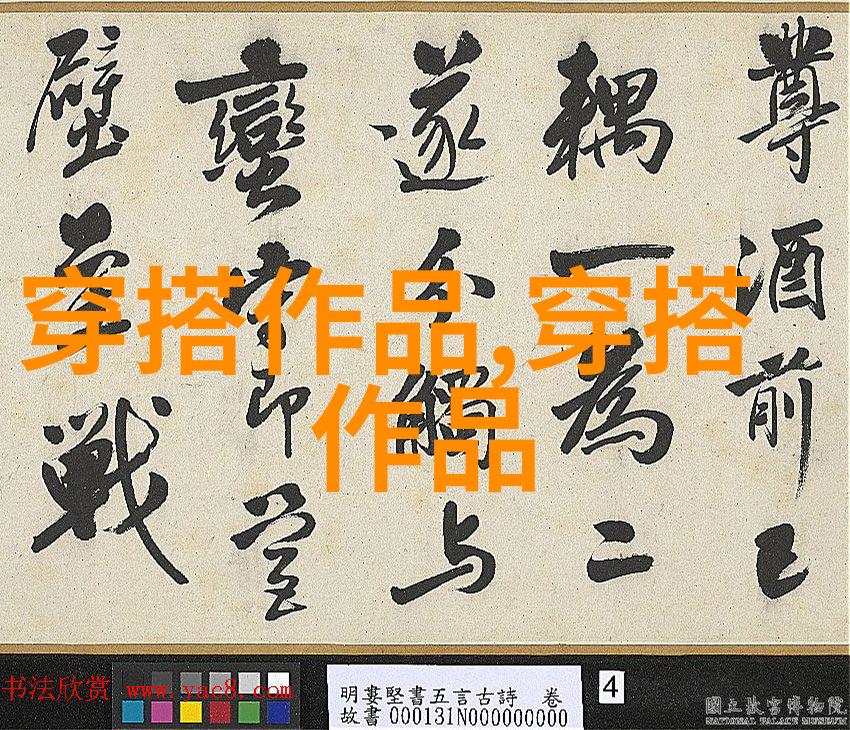 尊酒前已
耦一為二
遂分觸与
蠻即營
壁戰
穿搭作品,穿搭
作品
书法欣赏 www.yac8.com
明婁堅書五言古詩 卷
故書 000131N000000000
4
國立故宮博物院
NATIONAL PALACE MUSEUM